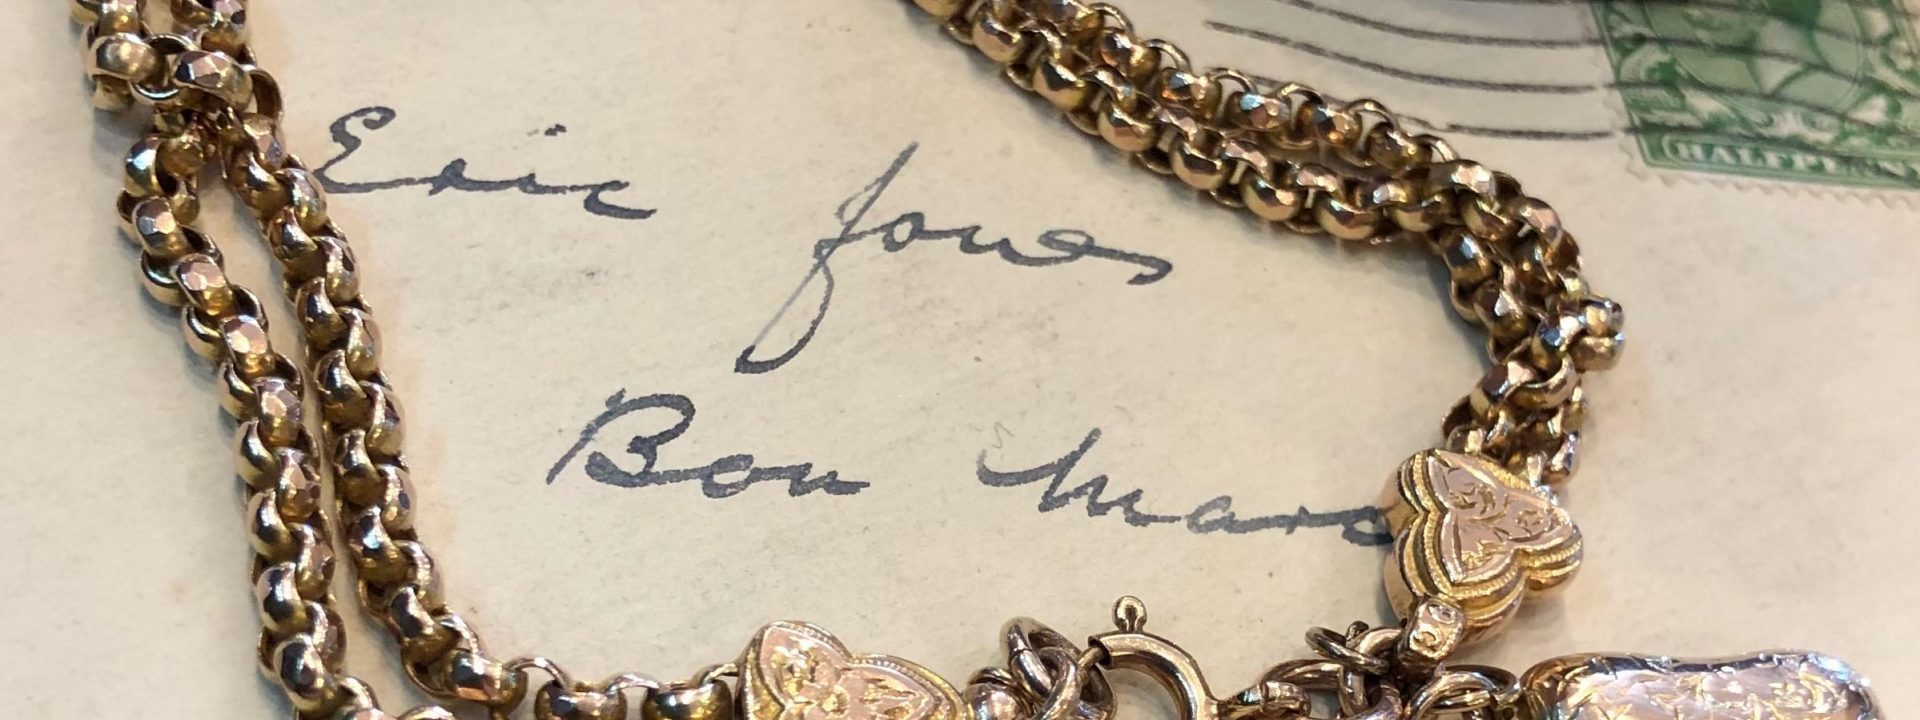 HALFPENNY
Eric Jones
Bon Marc